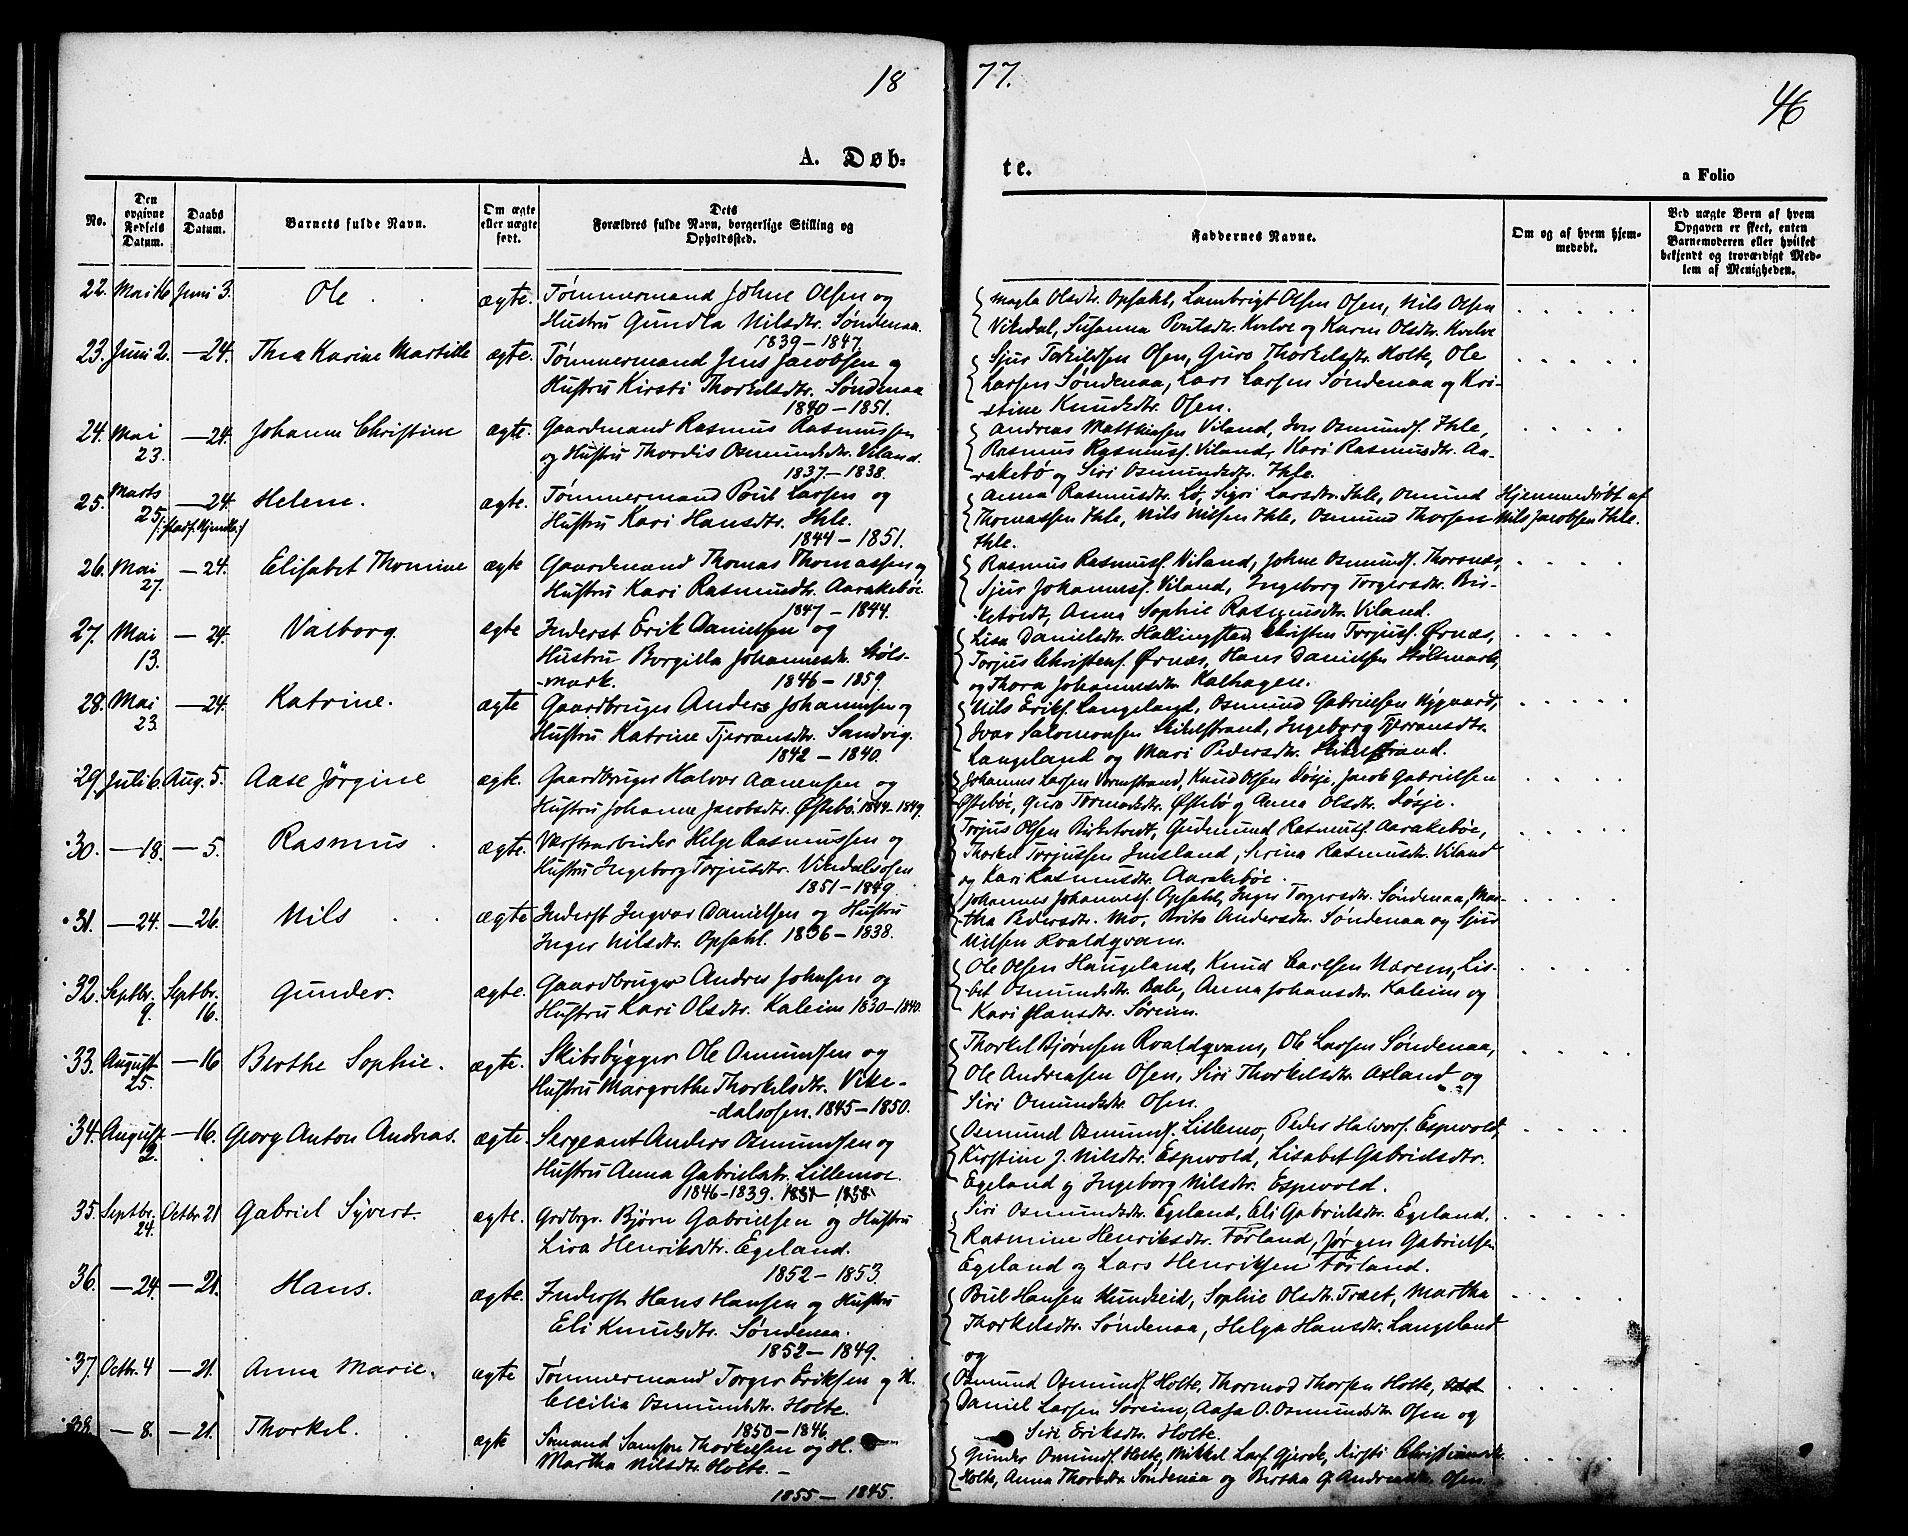 18
77.
46
A. Døb-
te.
a Folio
No.
Den opgivne Fødsels Datum.
Daabs Datum.
Barnets fulde Navn.
Om ægte eller uægte født.
Dets Forældres fulde Navn, borgerlige Stilling og Opholdssted.
Faddernes Navne.
Om og af hvem hjemmedøbt.
Ved uægte Børn af hvem Opgaven er skeet, enten Barnemoderen eller hvilket bekjendt og troværdigt Medlem af Menigheden.
22. Mai 16 Juni 3. Ole ægte. Tømmermand Johne Olsen og
Hustru Gundla Nilsdtr. Søndenaa.
1839 – 1847.
Magla Olsdtr. Opsahl, Lambrigt Olsen Osen, Nils Olsen
Vikedal, Susanna Poulsdtr. Kvelve og Karen Olsdtr. Kvelve
23. Juni 2. – 24. Thea Karine Martille ægte. Tømmermand Jens Jacobsen og
Hustru Kirsti Thorkelsdtr. Søndenaa
1840 – 1851.
Sjur Torkildsen Osen, Guro Thorkelsdtr. Holte, Ole
Larsen Søndenaa, Lars Larsen Søndenaa og Kri-
stine Knudsdtr. Osen.
24. Mai 23. – 24. Johanne Christine ægte. Gaardmand Rasmus Rasmussen
og Hustru Thordis Osmundsdtr. Viland.
1837 – 1838.
Andreas Matthiasen Viland, Iver Osmundf. Ihle,
Rasmus Rasmusf. Viland, Kari Rasmusdtr. Aa-
rakebø og Siri Osmundsdtr. Ihle.
25. Marts 25. – 24. Helene. ægte. Tømmermand Poul Larsen og
Hustru Kari Hansdtr. Ihle.
1844 – 1851.
Anna Rasmusdtr. Lø, Sigri Larsdtr. Ihle, Osmund
Thomassen Ihle, Nils Nilsen Ihle, Osmund Thorsen
Ihle.
Hjemmedøbt af
Nils Jacobsen Ihle.
26. Mai 27. – 24. Elisabet Thomine ægte Gaardmand Thomas Thomassen og
Hustru Kari Rasmusdtr. Aarakebøe.
1847 – 1844.
Rasmus Rasmusf. Viland, Johne Osmundf. Thorsnæs,
Sjur Johannesf. Viland, Ingeborg Torgersdtr. Bir-
ketvedt, Anna Sophie Rasmusdtr. Viland.
27. Mai 13. – 24. Valborg. ægte Inderst Erik Danielsen og
Hustru Borgilla Johannesdtr. Støls-
mark. 1846 – 1859.
Lisa Danielsdtr. Hallingstad, Christen Torjusf. Ørnæs,
Torjus Christenf. Ørnæs, Hans Danielsen Stølsmark,
og Thora Johannesdtr. Kalhagen.
28. Mai 23. – 24. Katrine. ægte Gaardbruger Anders Johannesen og
Hustru Katrine Tjerransdtr. Sandvig.
1842 – 1840.
Nils Eriksf. Langeland, Osmund Gabrielsen Nygaard,
Ivar Salomonsen Skikelstrand, Ingeborg Tjerransdtr.
Langeland og Mari Pedersdtr. Skikelstrand.
29. Juli 6. Aug. 5. Aase Jørgine ægte. Gaardbruger Halvor Aanensen og
Hustru Johanne Jacobsdtr. Østebø. 1844 – 1849.
Johannes Larsen Vormstrand, Knud Olsen Døsje, Jacob Gabrielsen
Østebøe, Guro Tormodsdtr. Østebø og Anna Olsdtr. Døsje.
30. – 18. – 5. Rasmus ægte. Værftsarbeider Helge Rasmussen og
Hustru Ingeborg Torjusdtr. Vikedalsosen
1851 – 1849.
Torjus Olsen Birketvedt, Gudmund Rasmusf. Aarakebøe,
Thorkel Torjussen Imsland, Serina Rasmusdtr. Viland
og Kari Rasmusdtr. Aarakebøe.
31. – 24. – 26. Nils ægte Inderst Ingvar Danielsen og Hustru
Inger Nilsdtr. Opsahl. 1836 – 1838.
Johannes Johannesf. Opsahl, Inger Torgersdtr. Søndenaa, Mar-
tha Pedersdtr. Mo, Brita Andersdtr. Søndenaa og Sjur
Nilsen Roaldqvam.
32. Septbr. 9. Septbr. 16. Gunder. ægte. Gaardbruger Andres Johnsen og
Hustru Kari Olsdtr. Kaleim 1830 – 1840.
Ole Olsen Haugeland, Knud Carlsen Narem, Lis-
bet Osmundsdtr. Bale, Anna Johansdtr. Kaleim og
Kari Hansdtr. Søreim.
33. August 25. – 16 Berthe Sophie. ægte. Skibsbygger Ole Osmundsen og
Hustru Margrethe Thorkelsdtr. Vike-
dalsosen. 1845 – 1850.
Thorkel Bjørnsen Roaldqvam, Ole Larsen Søndenaa,
Ole Andreasen Osen, Siri Thorkelsdtr. Axland og
Siri Omundsdtr. Osen.
34. August 2. – 16. Georg Anton Andreas. ægte. Sergeant Anders Osmundsen og
Hustru Anna Gabrielsdtr. Lillemoe.
1846 – 1839. 1831 – 1838.
Osmund Osmundf. Lillemo, Peder Halvorf. Espevold,
Kirstine J. Nilsdtr. Espevold, Lisabet Gabrielsdtr.
Egeland og Ingeborg Nilsdtr. Espevold.
35. Septbr. 24. Octbr. 21 Gabriel Syvert. ægte. Grdbrgr. Bjørn Gabrielsen og Hustru
Lisa Henriksdtr. Egeland.
1852 – 1853.
Siri Osmundsdtr. Egeland, Eli Gabrielsdtr. Egeland,
Rasmine Henriksdtr. Førland, Jørgen Gabrielsen
Egeland og Lars Henriksen Førland.
36. – 24. – 21. Hans. ægte. Inderst Hans Hansen og Hustru
Eli Knudsdtr. Søndenaa.
1852 – 1849.
Poul Hansen Mundheid, Sophie Olsdtr. Traet, Martha
Thorkelsdtr. Søndenaa, Helga Hansdtr. Langeland
og
37. Octbr. 4 – 21. Anna Marie. ægte Tømmermand Torger Eriksen og H.
Cecilia Osmundsdtr. Holte.
1850 – 1846.
Osmund Osmundf. Holte, Thormod Thorsen Holte,
Daniel Larsen Søreim, Aasa O. Osmundsdtr. Osen og
Siri Eriksdtr. Holte.
38. – 8. – 21. Thorkel. ægte Sømand Samson Thorkelsen og H.
Martha Nilsdtr. Holte. –
1855 – 1845.
Gunder Osmundf. Holte, Mikkel Larf. Gjerde, Kirsti Christiansdtr.
Holte, Anna Thorsdtr. Søndenaa og Bertha G. Andreasdtr. Osen.